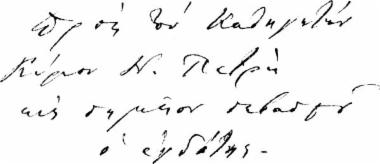 Πρὸς τὸν Καθηγητὴν
Κύριον Ν. Πετρῆ
εἰς σημεῖον σεβασμοῦ
ὁ ἐκδότης.